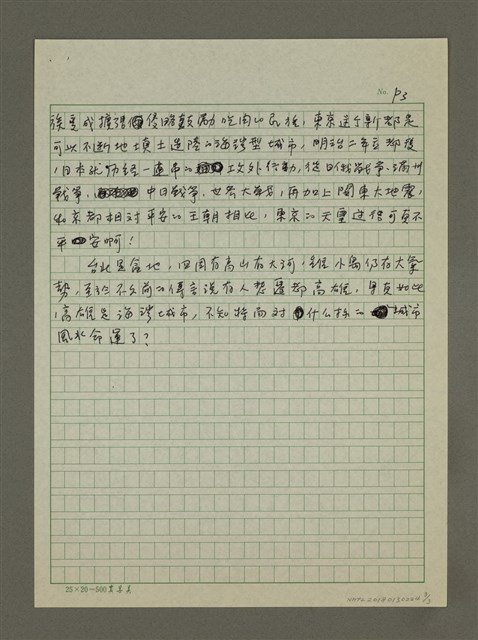 No. P3
族變成擴張侵略數勵吃肉的民族,東京這个新都是
可以不断地填土造陸的海港型城市,明治二年豆都後
,日本就歷經一連串的工攻外行動,從日俄战爭、滿州
戰爭、中日戰爭、世界大戰,再加上関東大地震,
和京都相对平安的王朝相比,東京的天皇這信可真不
平安啊!
台北是盆地,四周有高山有大河,雖小島仍有大氣
勢,至於不久前的傳言說有人想遷都高雄,果真如此
,高雄是海港城市,不知將面对什么样的城市
風水命運了?
25×20=500
3/3